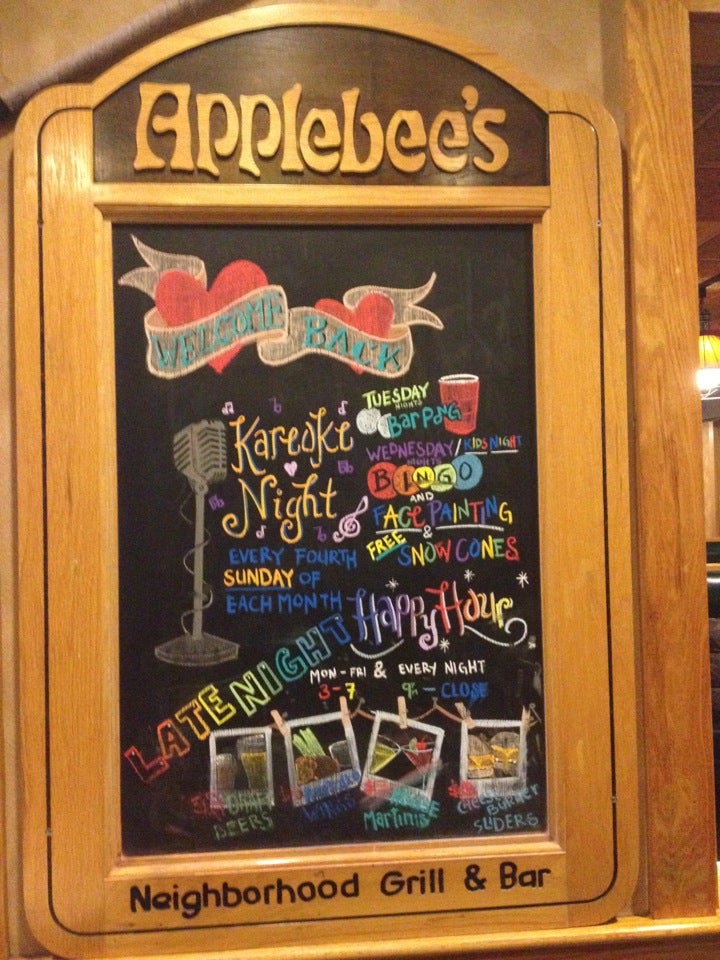 Applebee's
WELCOME BACK
Kareoke
Night
EVERY FOURTH
SUNDAY OF
EACH MONTH
TUESDAY
NIGHTS
Bar Pong
WEDNESDAY / KIDS NIGHT
NIGHTS
BINGO
AND
FACE PAINTING
&
FREE SNOW CONES
LATE NIGHT Happy Hour
MON - FRI & EVERY NIGHT
3 - 7 9 - CLOSE
BEERS
WINGS
Martinis
CHEESE
BURGER
SLIDERS
Neighborhood Grill & Bar